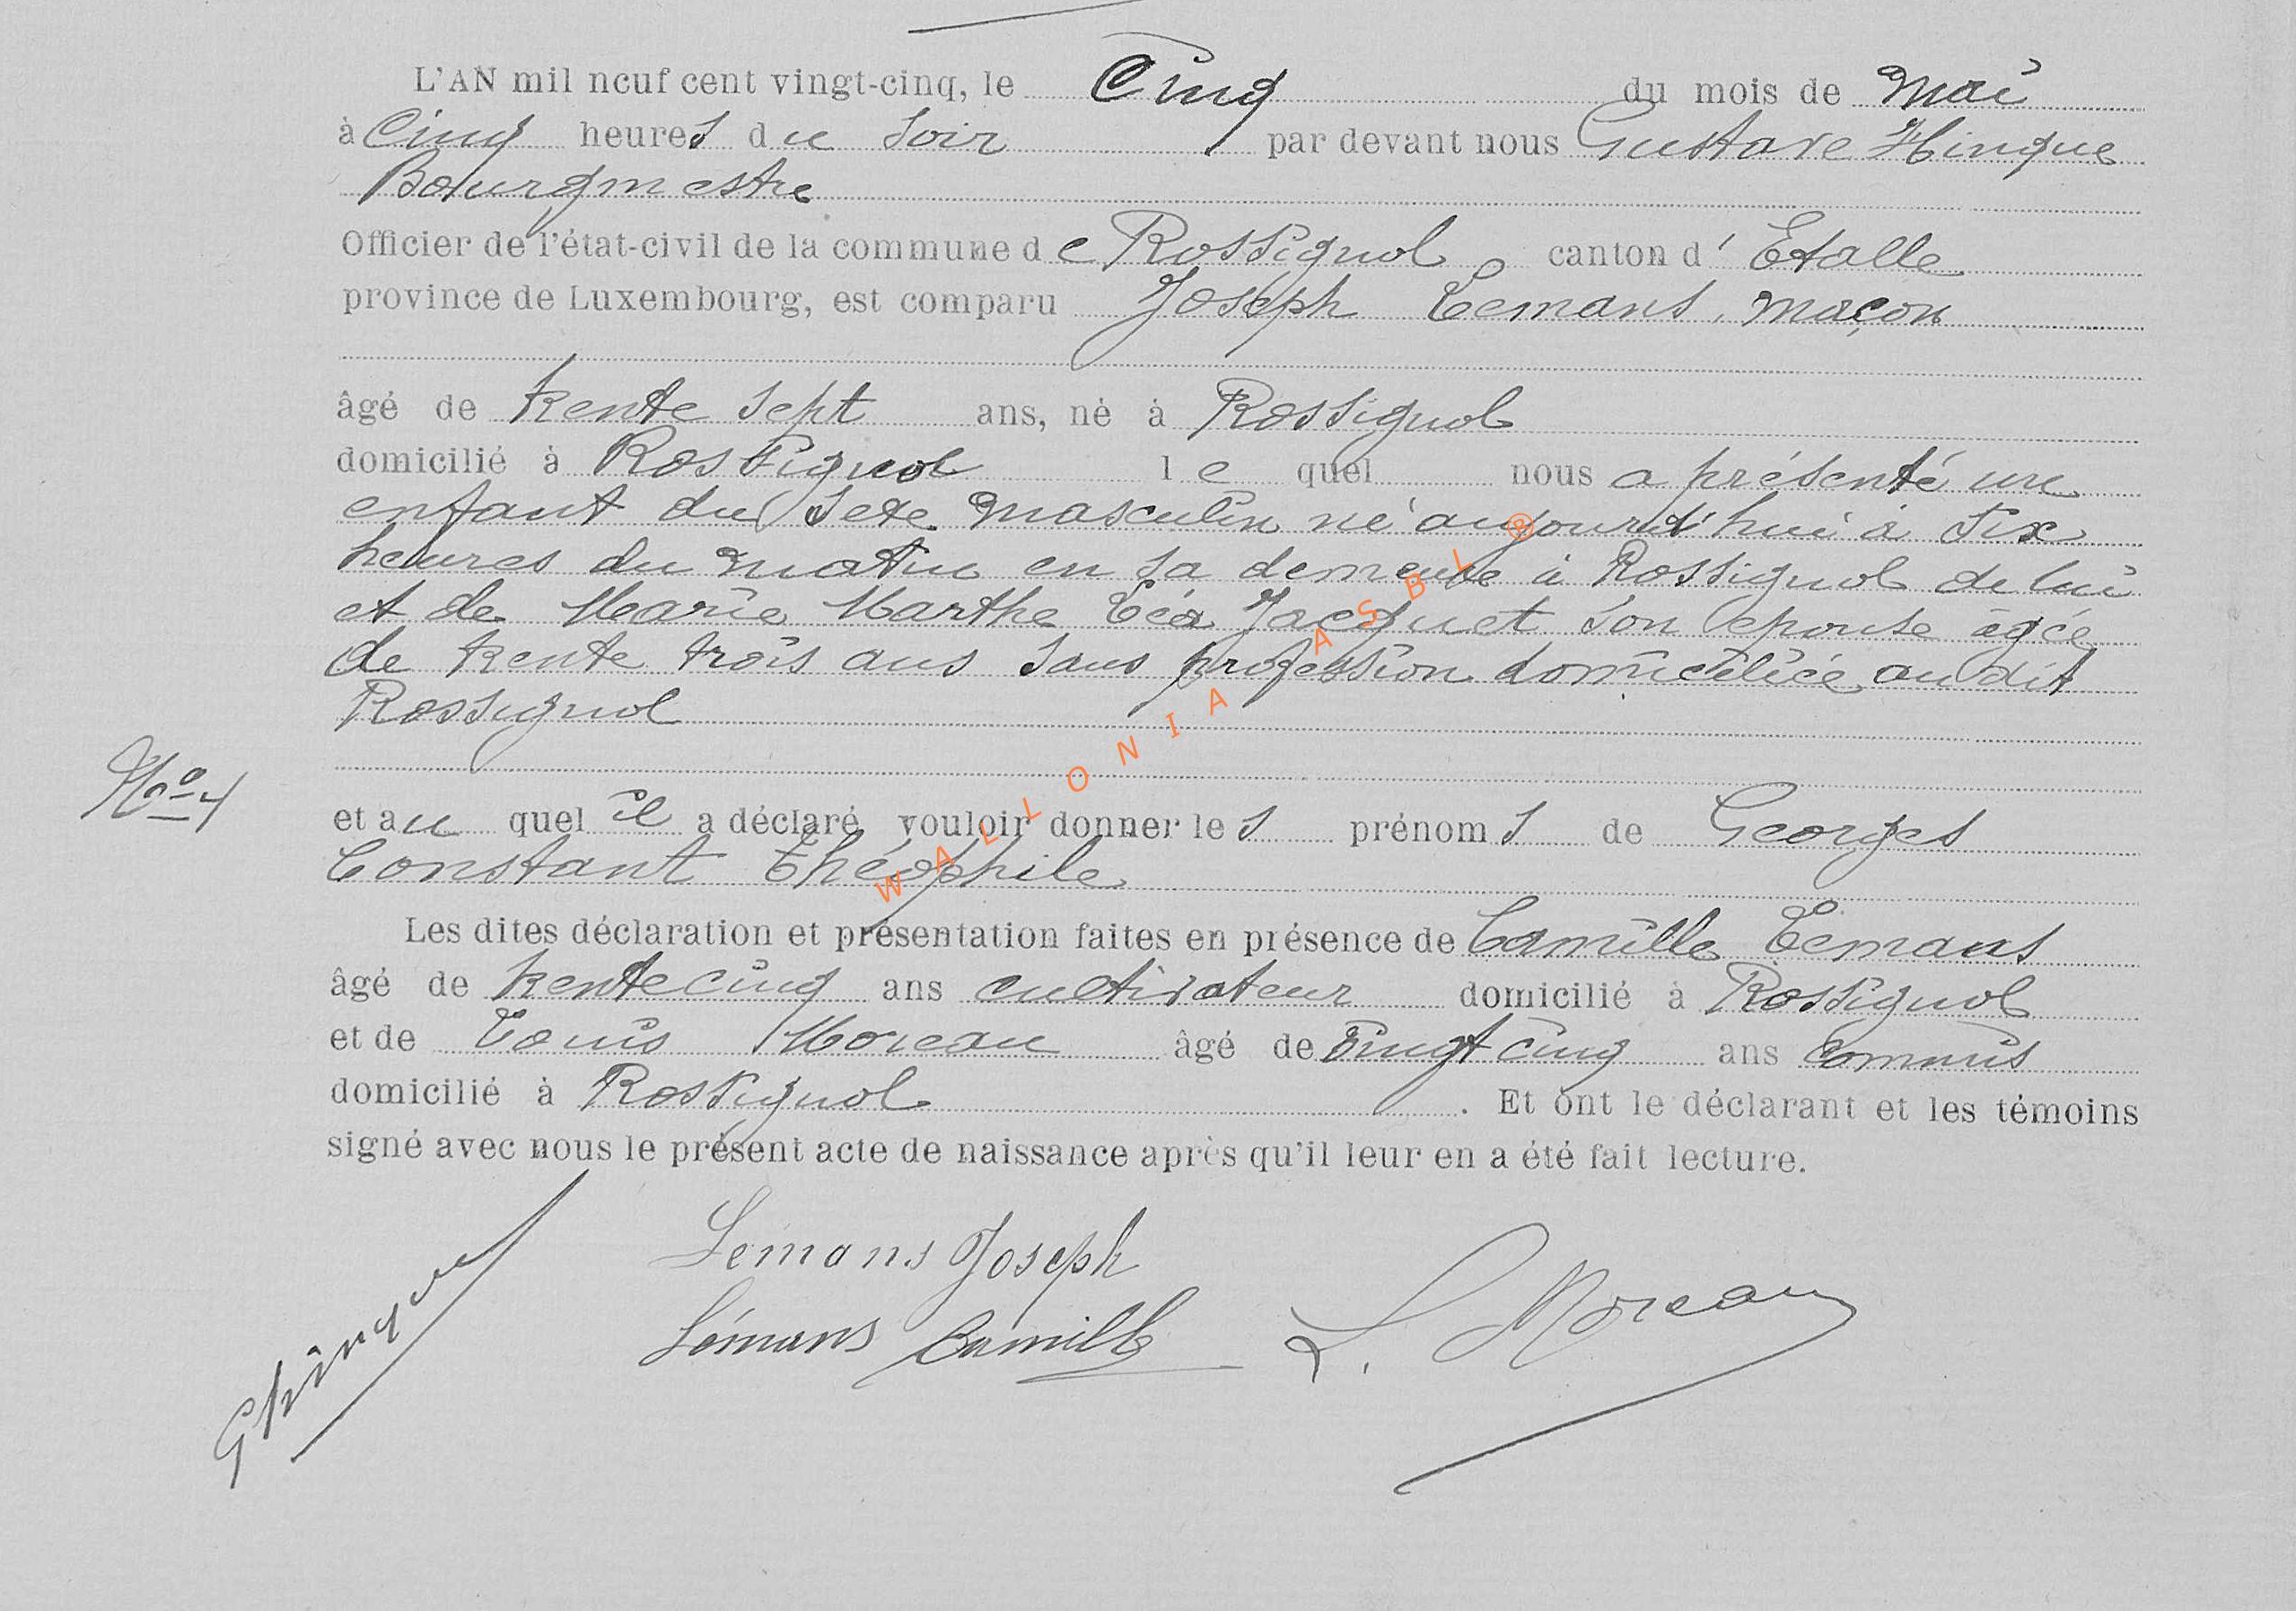 L'AN mil neuf cent vingt-cinq, le Cinq du mois de Mai
à Cinq heures du soir par devant nous Gustave Hinque
Bourgmestre
Officier de l'état-civil de la commune de Rossignol canton d'Etalle
province de Luxembourg, est comparu Joseph Lemans, maçon
âgé de trente sept ans, né à Rossignol
domicilié à Rossignol lequel nous a présenté un
enfant du sexe masculin né aujourd'hui à six
heures du matin en sa demeure à Rossignol de lui
et de Marie Marthe Léa Jacquet son épouse agée
de trente trois ans sans profession domiciliée au dit
Rossignol
No 4
et au quel il a déclaré vouloir donner les prénoms de Georges
Constant Théophile
Les dites déclaration et présentation faites en présence de Camille Lemans
âgé de trente cinq ans cultivateur domicilié à Rossignol
et de Louis Moreau âgé de vingt cinq ans commis
domicilié à Rossignol. Et ont le déclarant et les témoins
signé avec nous le présent acte de naissance après qu'il leur en a été fait lecture.
GHinque
Lemans Joseph
Lémans Camille L. Moreau
WALLONIA ASBL ®